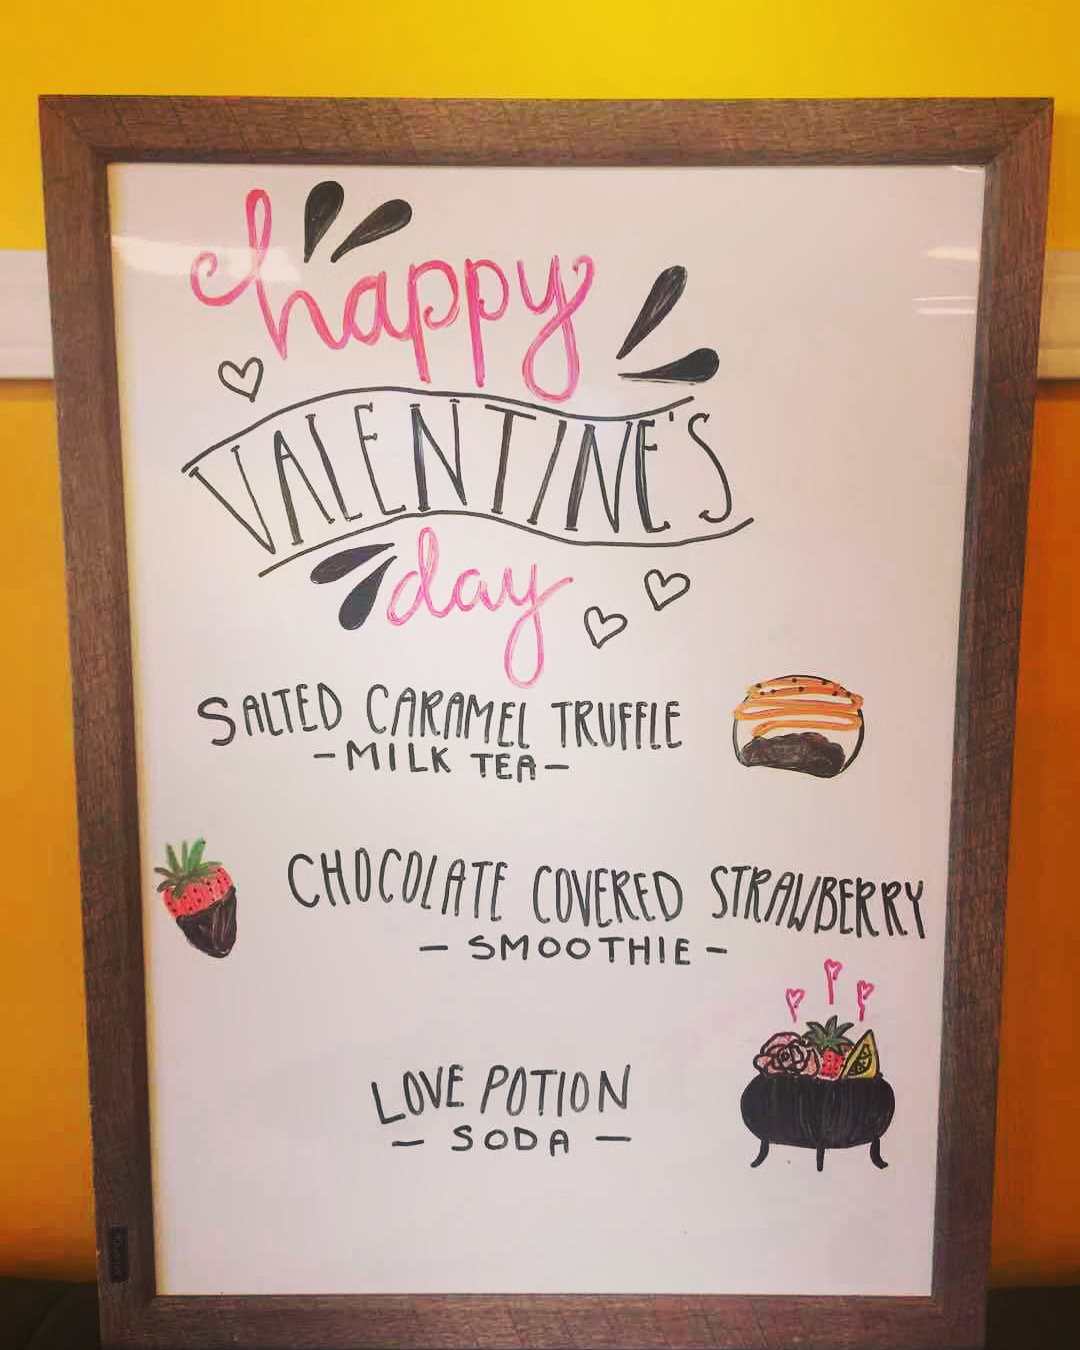 happy
VALENTINE'S
day
SALTED CARAMEL TRUFFLE
-MILK TEA-
CHOCOLATE COVERED STRAWBERRY
- SMOOTHIE -
LOVE POTION
- SODA -